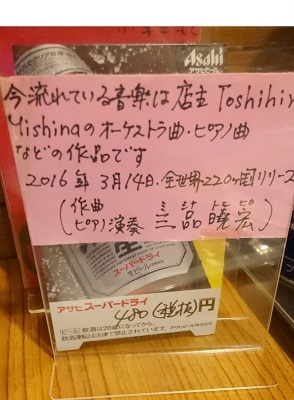 Asahi
アサヒビール
今流れている音楽は店主 Toshihir
Mishinaのオーケストラ曲・ピアノ曲
などの作品です
2016年 3月14日・全世界220ヶ国リリース
(作曲
ピアノ演奏 三品暁宏)
生
生ビール
スーパードライ
アサヒスーパードライ
480(税抜)円
ビール 飲酒は20歳になってから。
飲酒運転は法律で禁止されています。アサヒビール株式会社